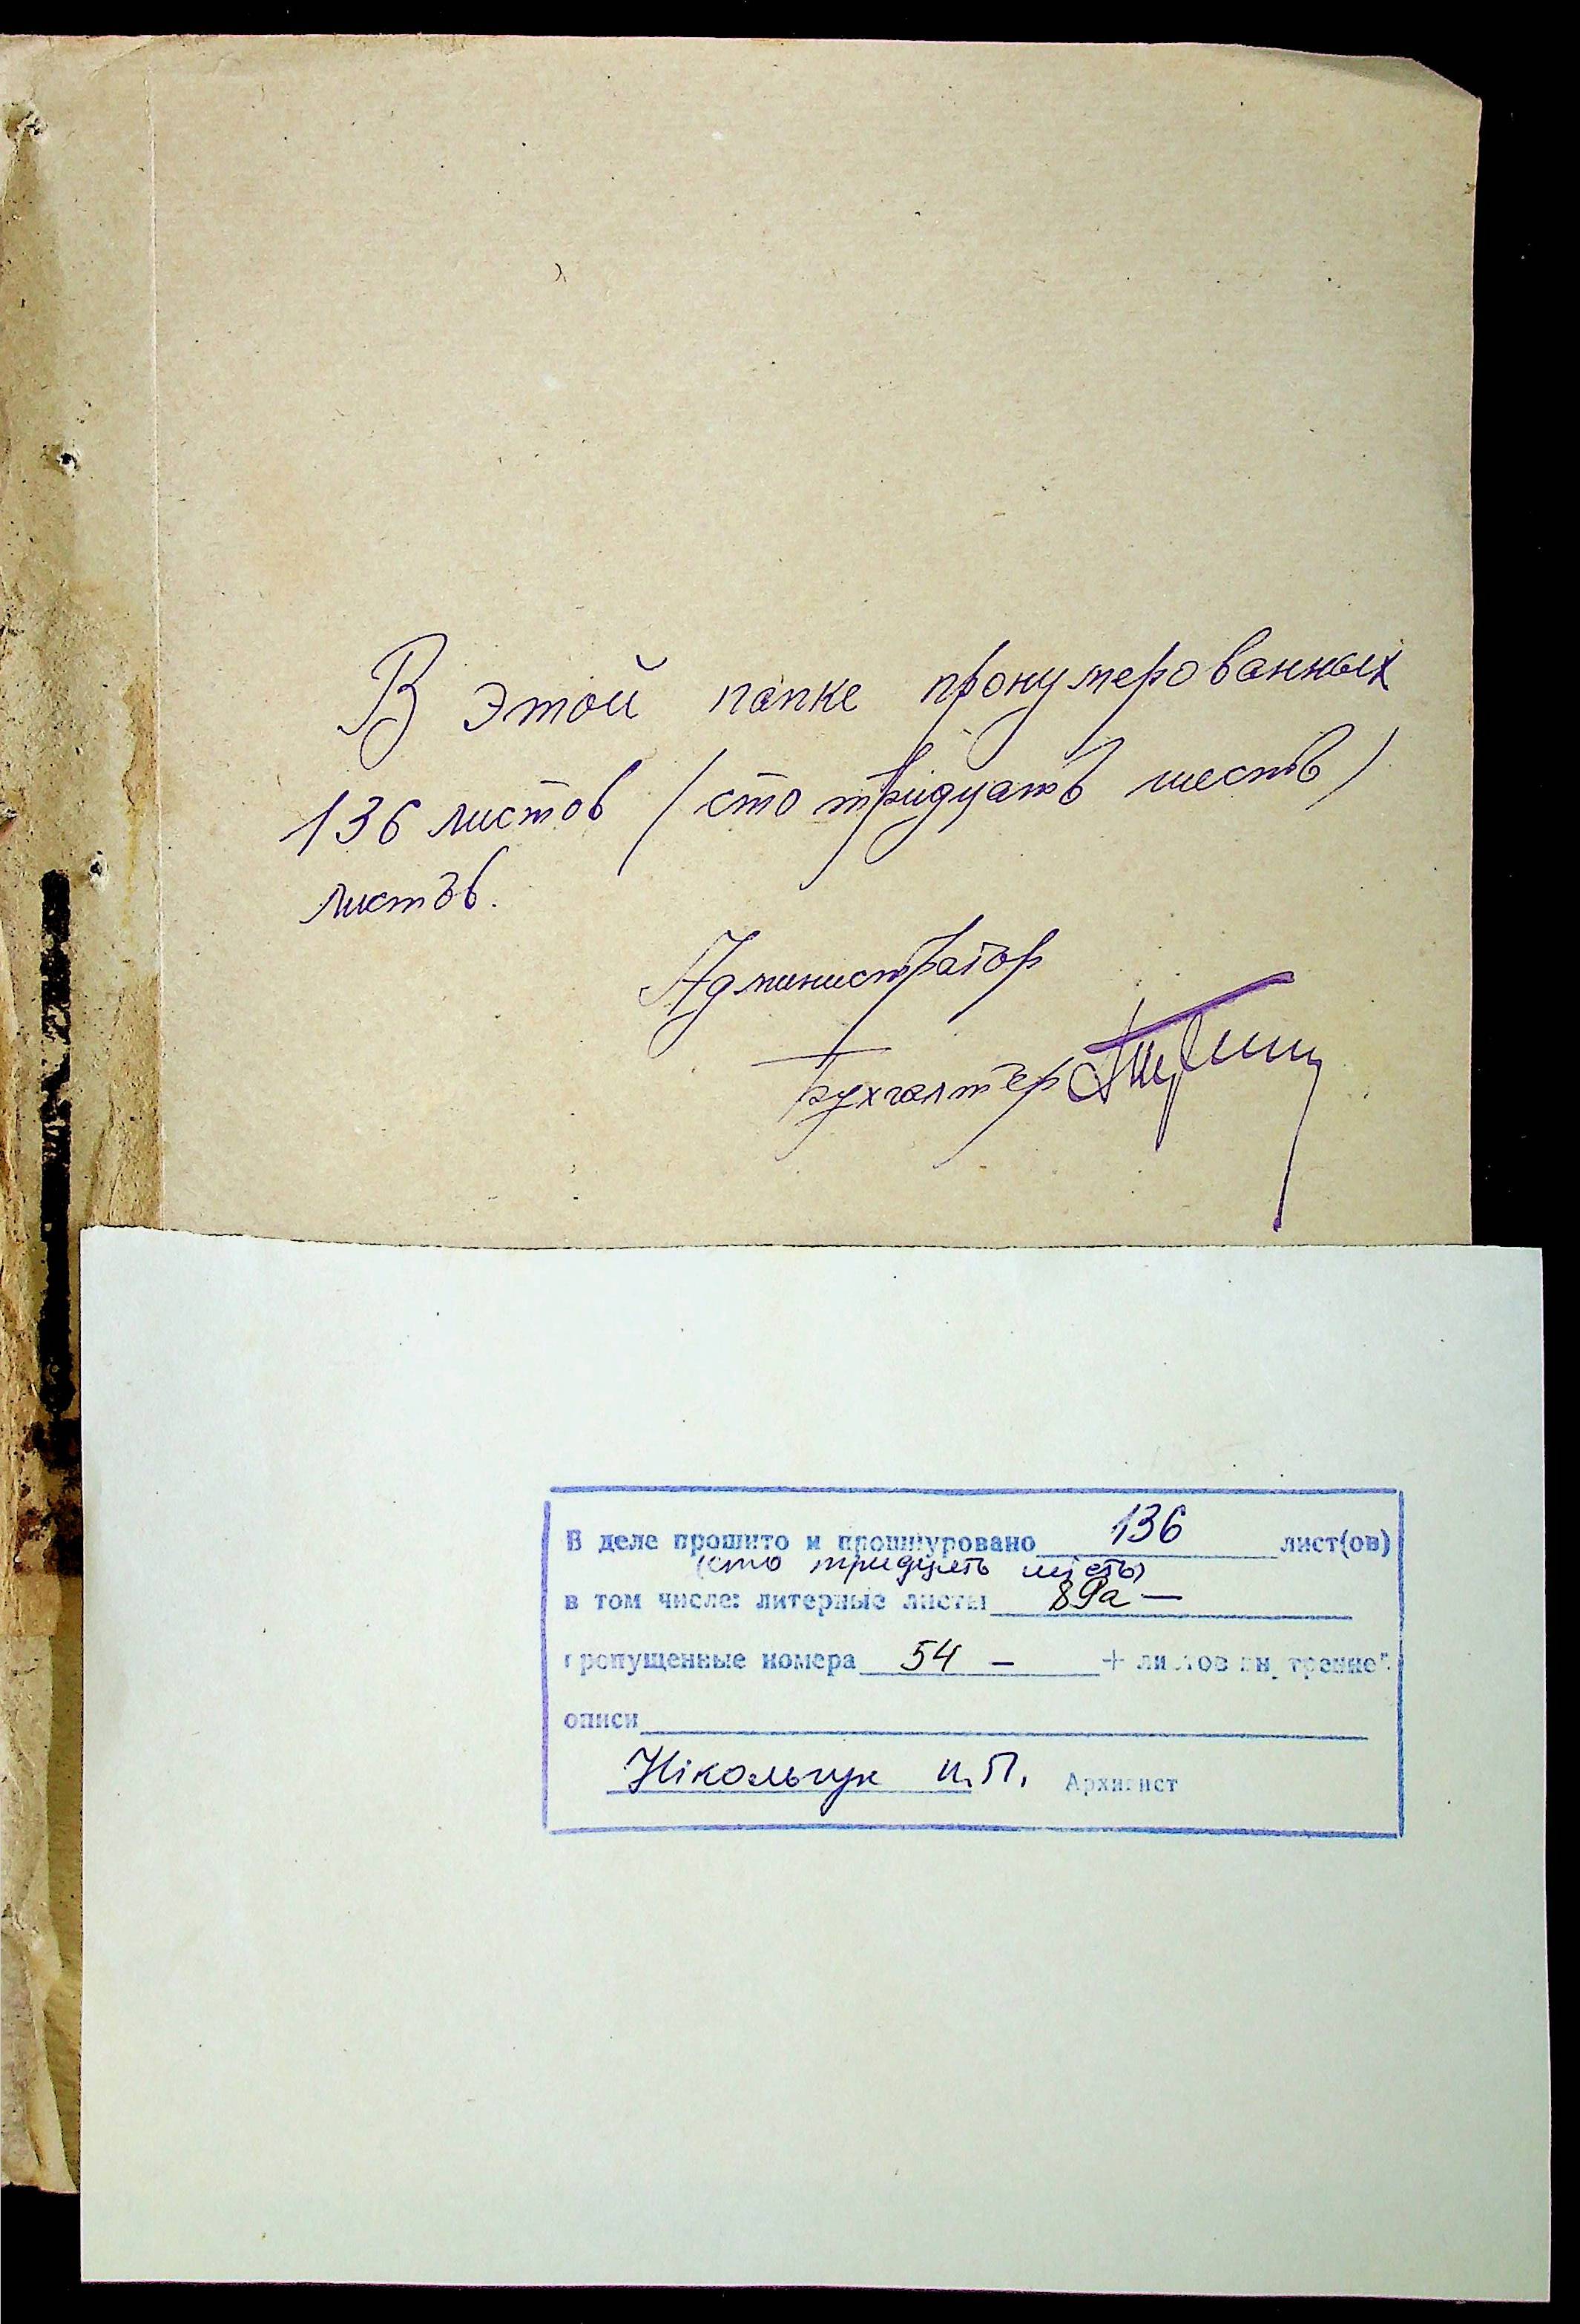 В этой папке пронумерованных
136 листов (сто тридцать шесть)
листов.
Администратор
Бухгалтер
В деле прошито и прошнуровано 136 лист(ов)
(сто тридцять шість)
в том числе: литерные листы 89а —
пропущенные номера 54 — + листов внутренней
описи
Нікольчук Н.П. Архивист